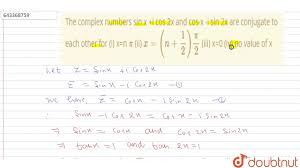 643368759
The complex numbers sin x + i cos 2x and cos x + sin 2x are conjugate to
each other for (i) x=n π (ii) x = (n + 1/2) π/2 (iii) x=0 (iv) no value of x
Let Z = Sinx + i Cos2x
Z̄ = Sinx - i Cos2x - ①
we have, Z̄ = Cosx - i Sin2x - ②
Sinx - i Cos2x = Cosx - i Sin2x
⇒ Sinx = Cosx and Cos2x = Sin2x
⇒ tanx = 1 and tan 2x = 1
doubtnut